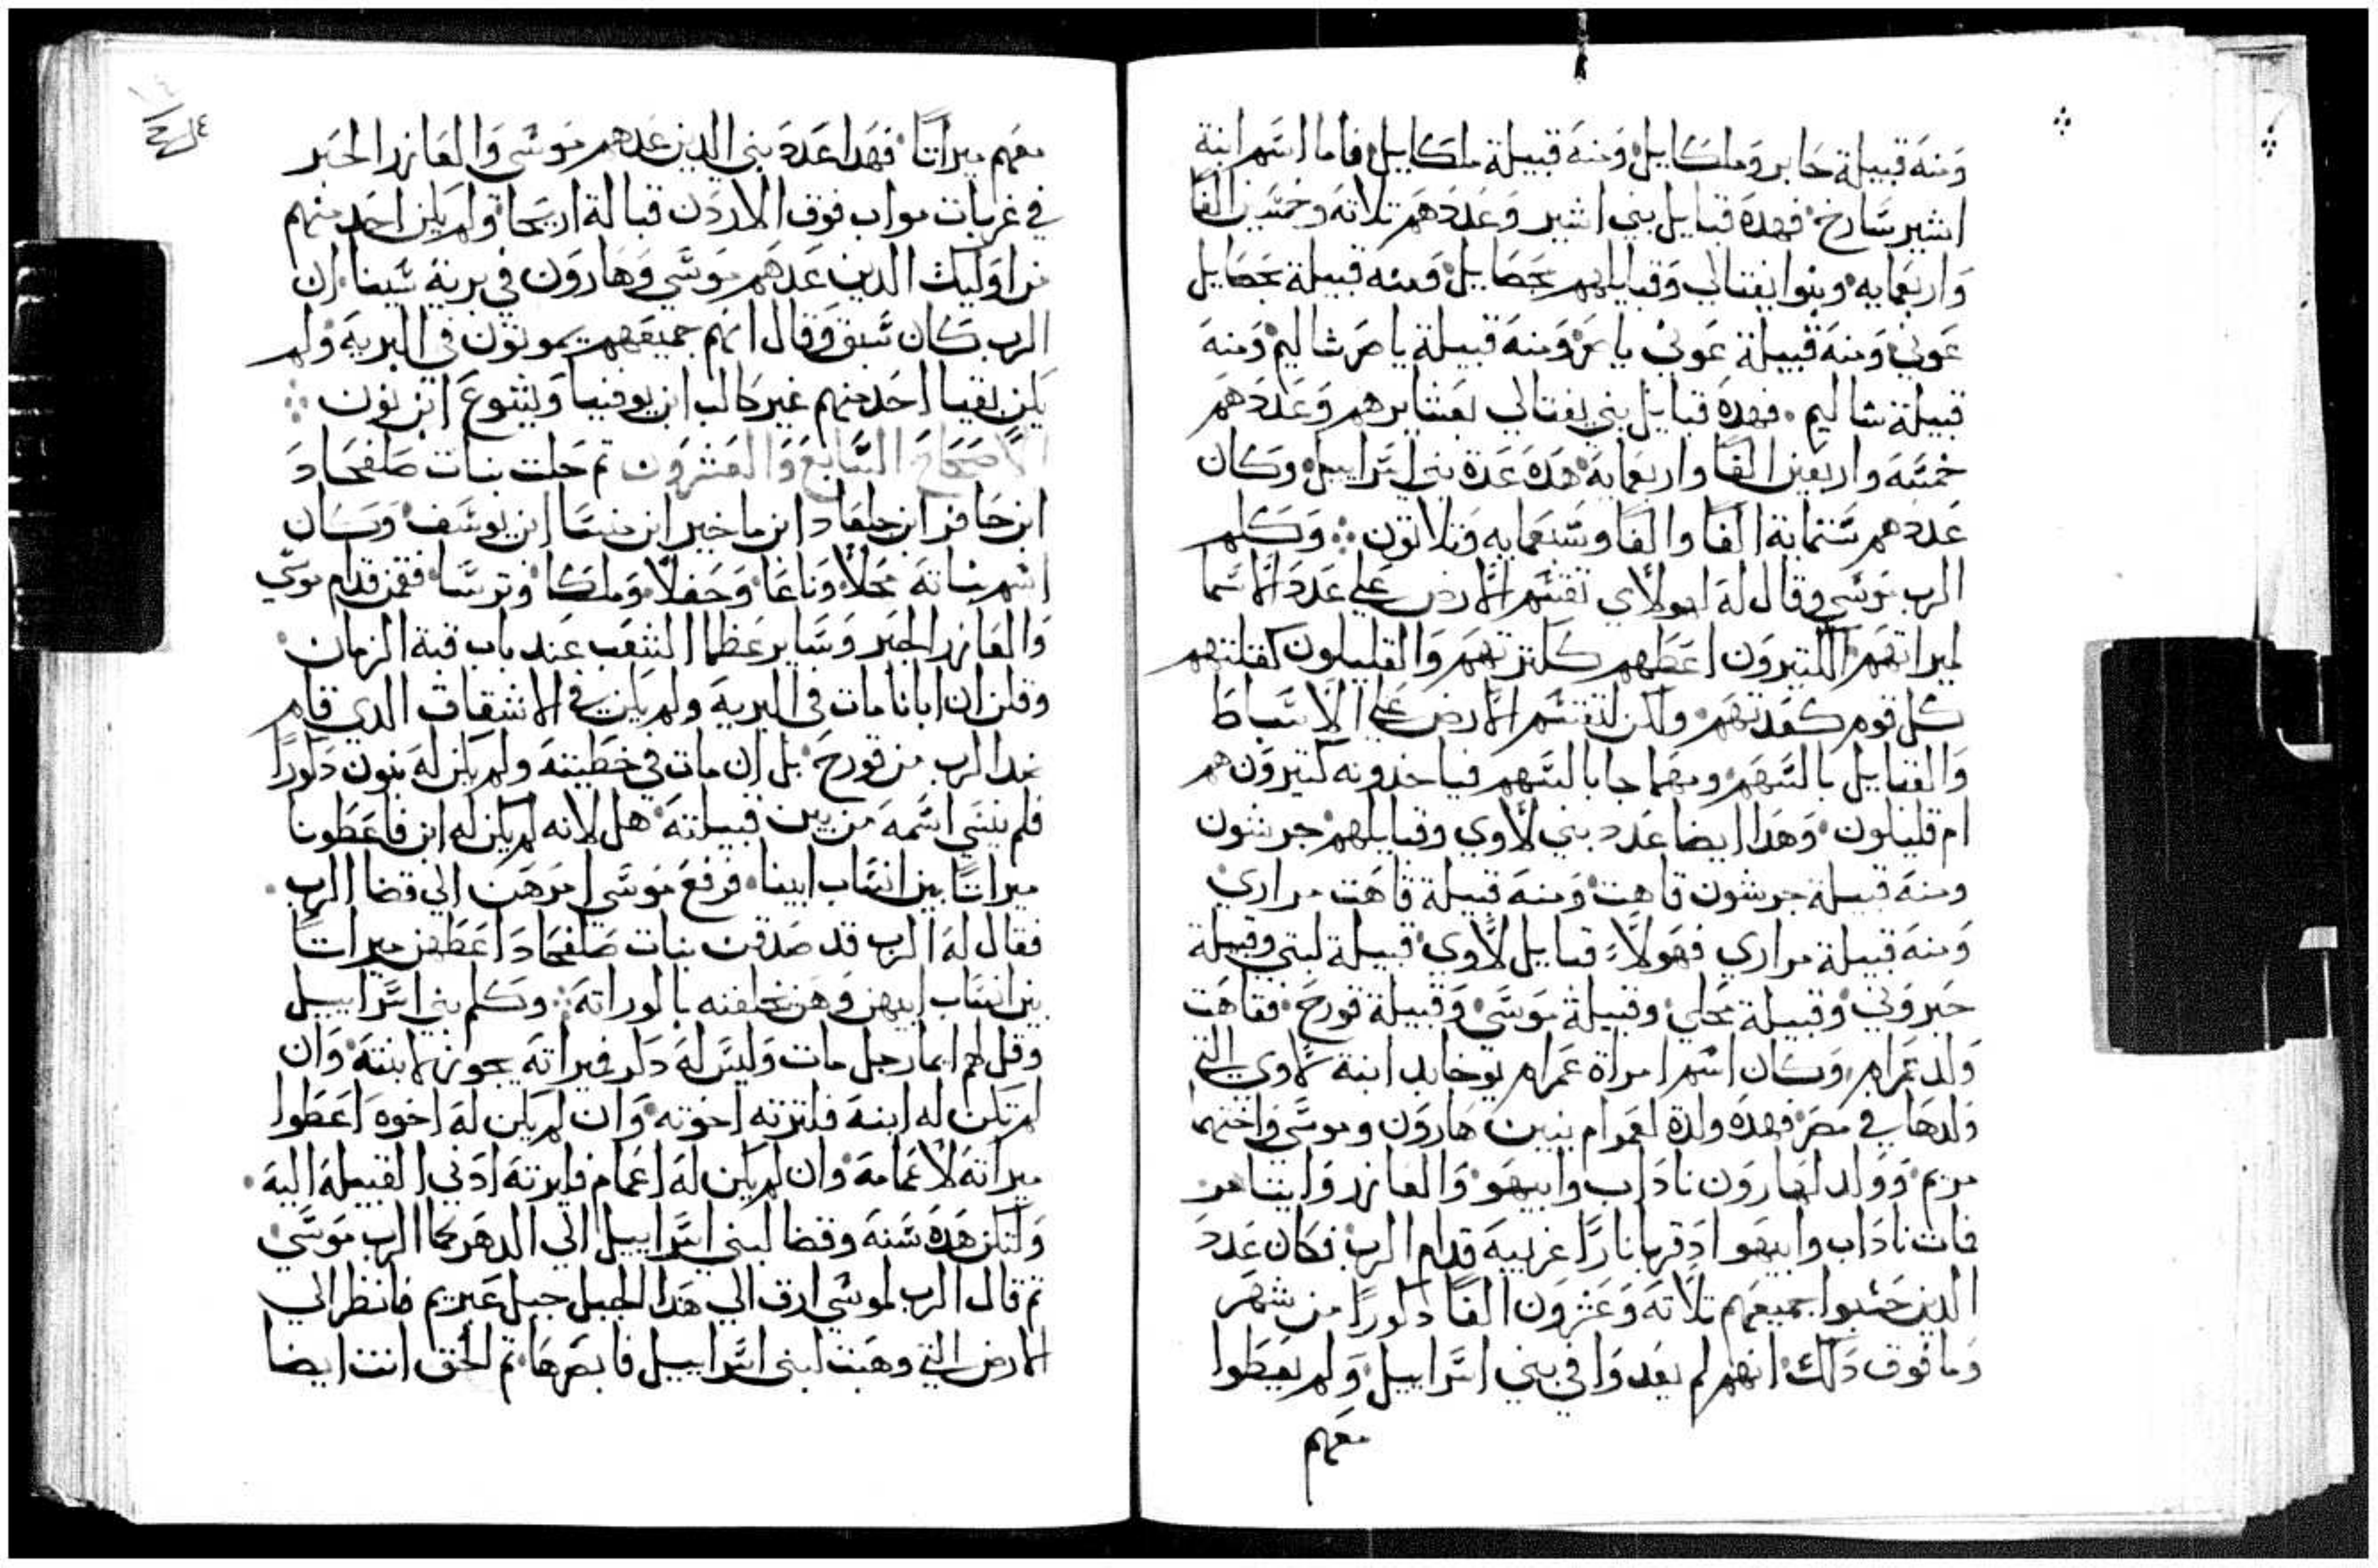 ومنه قبيلة حابر وملكاييل ومنه قبيلة ملكاييل فاما اسم ابنة
اشير سارخ فهده قبايل بني اشير وعددهم تلاته وخمسين الفا
واربعمايه وبنوا نفتالي وقبايلهم بحصاييل ومنه قبيلة بحصاييل
عوني ومنه قبيلة عوني ياصر ومنه قبيلة ياصر شاليم ومنه
قبيلة شاليم فهده قبايل بني نفتالي بعشايرهم وعددهم
خمسه واربعين الفا واربعمايه هده عدة بني اسراييل وكان
عددهم ستماية الفا والفا وسبعمايه وتلاتون وكلم
الرب موسي وقال له لهولاي تقسم الارض علي عدد الاسما
لميراتهم الكتيرون اعطهم ككترتهم والقليلون كقلتهم
كل قوم كعدتهم ولكن لتقسم الارض علي الاسباط
والقبايل بالسهم ومهما جا بالسهم فياخدونه كتيرون هم
ام قليلون وهدا ايضا عدد بني لاوي وقبايلهم جرشون
ومنه قبيلة جرشون قاهت ومنه قبيلة قاهت مراري
ومنه قبيلة مراري فهولاء قبايل لاوي قبيلة لبني وقبيلة
حبروني وقبيلة محلي وقبيلة موسي وقبيلة قورح فقاهت
ولد عمرام وكان اسم امراة عمرام يوخابد ابنة لاوي التي
ولدها في مصر فهده ولدة لعمرام بنيين هارون وموسي واختهما
مريم وولد لهارون ناداب وابيهو والعازر وايتامر
فات ناداب وابيهوا ادقربا نارا غريبيه قدام الرب فكان عدد
الدين حسبوا جميعهم تلاته وعشرون الفا دكورا من شهر
وما فوق دلك انهم لم يعدوا في بني اسراييل ولم يعطوا
معهم
معهم ميراتا فهدا عدد بني الدين عدهم موسي والعازر الحبر
في غربات مواب فوق الاردن قبالة اريحا ولم يكن احد منهم
من اوليك الدين عدهم موسي وهارون في برية سينا ان
الرب كان سبق وقال انهم جميعهم يموتون في البريه ولم
يكن بقيا احد منهم غير كالب ابن يوفنيا ويشوع ابن نون
الاصحاح السابع والعشرون تم جات بنات صلفحاد
ابن حافر ابن جلعاد ابن ماخير ابن منسا ابن يوسف وكان
اسم بناته محلا وناعا وحفلا وملكا وترسا فقمن قدام موسي
والعازر الحبر وساير عظما الشعب عند باب قبة الزمان
وقلن ان ابانا مات في البريه ولم يكن في الانشقاق الدي قام
ضد الرب من قورح بل ان مات في خطيته ولم يكن له بنون دكورا
فلم ينسي اسمه من بين قبيلته هل لانه لم يكن له ابن فاعطونا
ميراتا بين انساب ابينا فرفع موسي امرهن الي قضا الرب
فقال له الرب قد صدقن بنات صلفحاد اعطهن ميراتا
بين انساب ابيهن وهن يخلفنه بالوراته وكلم بني اسراييل
وقل لهم ايما رجل مات وليس له دكر فميراته يجوز لابنته وان
لم تكن له ابنه فلترته اخوته وان لم يكن له اخوه اعطوا
ميراته لاعمامه وان لم يكن له اعمام فليرته ادني القبيله اليه
ولتكن هده سنه وقضا لبني اسراييل الي الدهر كما الرب موسي
تم قال الرب لموسي ارق الي هدا الجبل جبل عبريم فانظر الي
الارض التي وهبت لبني اسراييل فابصرها تم الحق انت ايضا